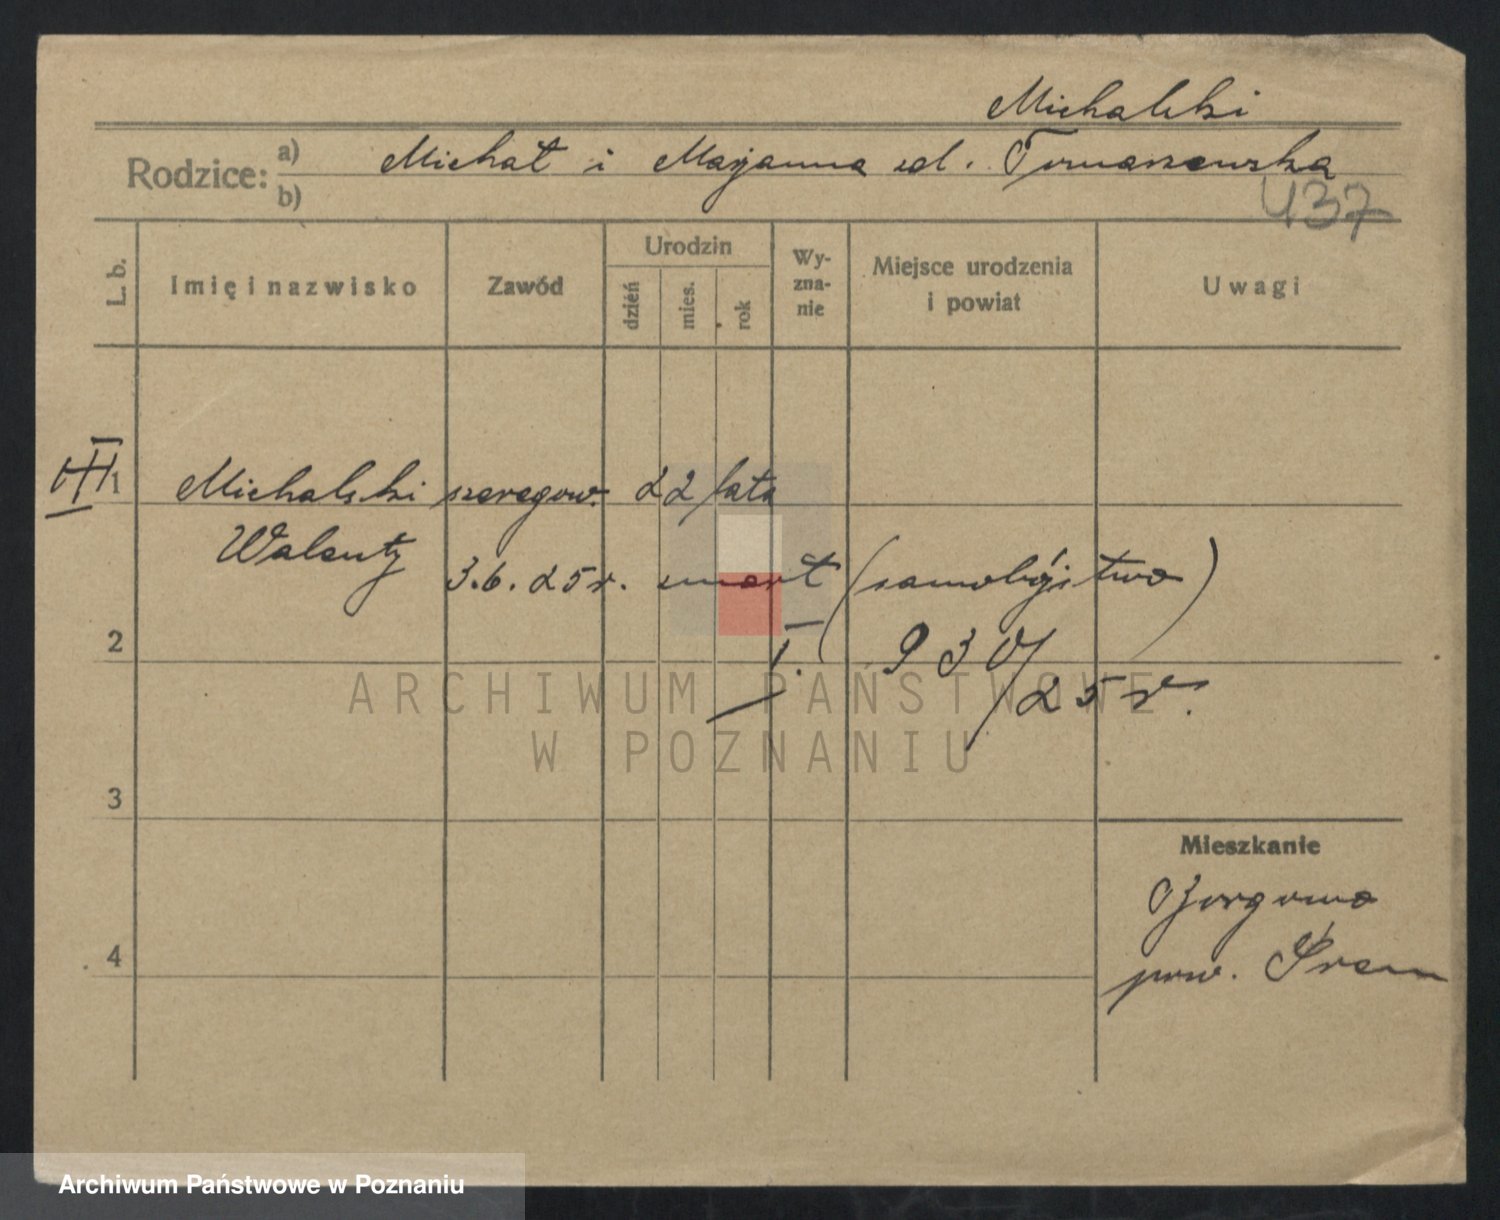 Michalski
Rodzice: a) Michał i Marjanna zd. Tomaszewska
b)
437
L. b.
Imię i nazwisko
Zawód
Urodzin
dzień
mies.
rok
Wy-
zna-
nie
Miejsce urodzenia
i powiat
Uwagi
1 Michalski szeregow. 22 lata
Walenty
3.6.25 r. zmarł (samobójstwo)
2
I. 930/25 r.
ARCHIWUM PAŃSTWOWE
W POZNANIU
3
Mieszkanie
4
pow. Śrem
Archiwum Państwowe w Poznaniu